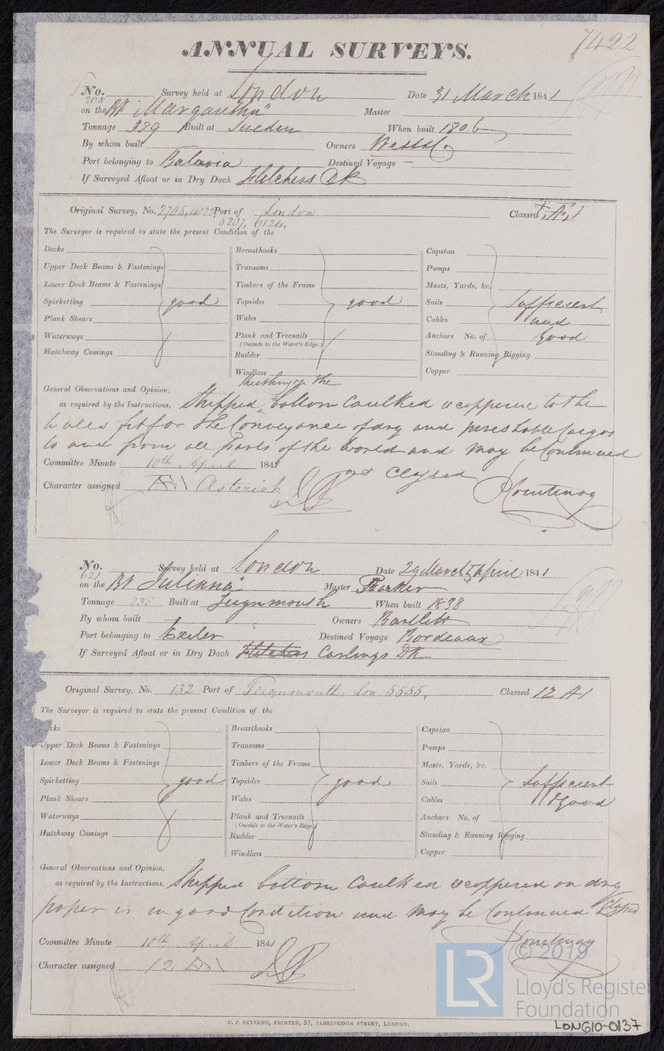 7422
ANNUAL SURVEYS.
No. 205 Survey held at London Date 31 March 1841
on the Bk "Margaretha" Master
Tonnage 339 Built at Sweden When built 1806
By whom built Owners West & Co
Port belonging to Batavia Destined Voyage —
If Surveyed Afloat or in Dry Dock Fletchers Dk
Original Survey, No. 2795, Port of London Classed
6237, 6124,
The Surveyor is required to state the present Condition of the
Decks Breasthooks Capstan
Upper Deck Beams & Fastenings Transoms Pumps
Lower Deck Beams & Fastenings Timbers of the Frame Masts, Yards, &c.
Spirketting good Topsides good Sails Sufficient
Plank Shears Wales Cables and
Waterways Plank and Treenails Anchors No. of good
(Outside to the Water's Edge.)
Hatchway Comings Rudder Standing & Running Rigging
Windlass Copper
General Observations and Opinion,
Sheathing on the
as required by the Instructions, Stripped bottom Caulked & coppered to the
Wales fit for the Conveyance of dry and perishable cargos
to and from all parts of the World and may be Continued
as Classed
Committee Minute 10th April 1841
Character assigned Æ1 Asterisk Courtenay
No. 621 Survey held at London Date 29 March 5 April 1841
on the Bk "Julianna" Master Parker
Tonnage 232 Built at Teignmouth When built 1838
By whom built Owners Bartlett
Port belonging to Exeter Destined Voyage Bordeaux
If Surveyed Afloat or in Dry Dock Fletchers Curlings Dk
Original Survey, No. 132 Port of Teignmouth, Lon. 5555, Classed 12 A1
The Surveyor is required to state the present Condition of the
cks Breasthooks Capstan
Upper Deck Beams & Fastenings Transoms Pumps
Lower Deck Beams & Fastenings Timbers of the Frame Masts, Yards, &c.
Spirketting good Topsides good Sails Sufficient
Plank Shears Wales Cables & good
Waterways Plank and Treenails Anchors No. of
(Outside to the Water's Edge.)
Hatchway Comings Rudder Standing & Running Rigging
Windlass Copper
General Observations and Opinion,
as required by the Instructions, Stripped bottom Caulked & coppered on dry
paper is in good Condition and may be Continued as Clasd
Committee Minute 10th April 1841 Courtenay
Character assigned 12 A1
C. F. SEYFANG, PRINTER, 57, FARRINGDON STREET, LONDON.
LR © 2019
Lloyd's Register
Foundation
LON610-0137